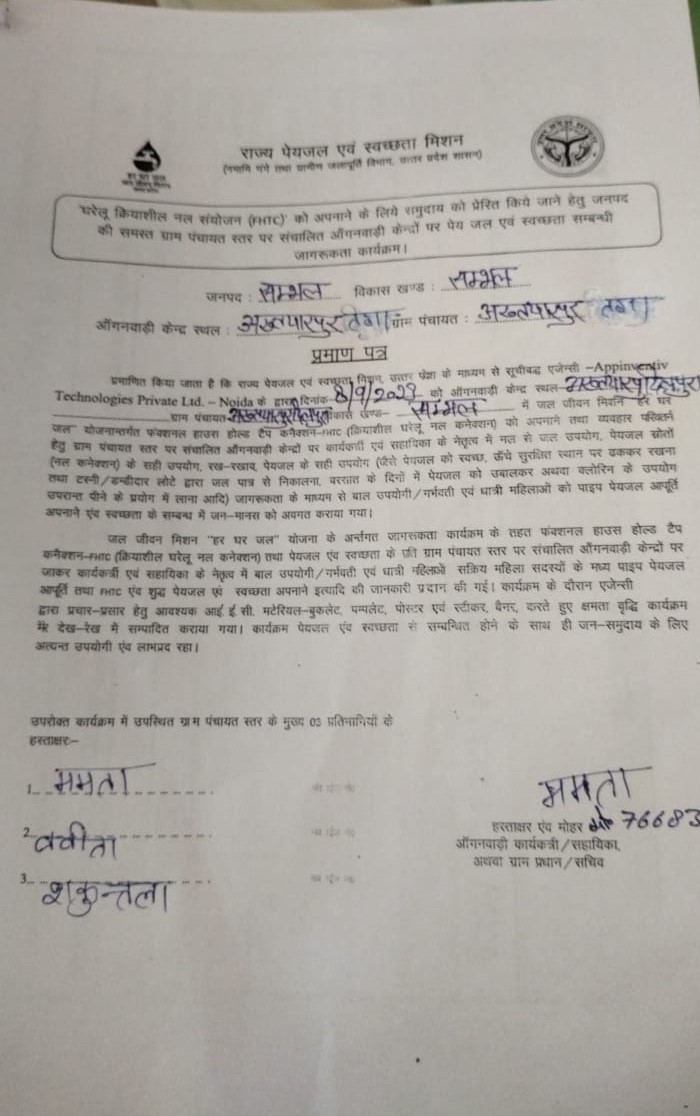 राज्य पेयजल एवं स्वच्छता मिशन
(नमामि गंगे तथा ग्रामीण जलापूर्ति विभाग, उत्तर प्रदेश शासन)
'घरेलू क्रियाशील नल संयोजन (FHTC)' को अपनाने के लिये समुदाय को प्रेरित किये जाने हेतु जनपद
की समस्त ग्राम पंचायत स्तर पर संचालित आँगनवाड़ी केन्द्रों पर पेय जल एवं स्वच्छता सम्बन्धी
जागरूकता कार्यक्रम।
जनपद : सम्भल विकास खण्ड : सम्भल
आँगनवाड़ी केन्द्र स्थल : अख्त्यारपुर तगा ग्राम पंचायत : अख्त्यारपुर तगा
प्रमाण पत्र
प्रमाणित किया जाता है कि राज्य पेयजल एवं स्वच्छता मिशन, उत्तर प्रेश के माध्यम से सूचीबद्ध एजेन्सी –Appinventiv
Technologies Private Ltd. – Noida के द्वारा दिनांक- 8/9/2023 को ऑगनवाड़ी केन्द्र स्थल-
ग्राम पंचायत विकास खण्ड- सम्भल में जल जीवन मिशन हर घर
जल योजनान्तर्गत फंक्शनल हाउस होल्ड टैप कनैक्शन-FHTC (क्रियाशील घरेलू नल कनेक्शन) को अपनाने तथा व्यवहार परिवर्तन
हेतु ग्राम पंचायत स्तर पर संचालित आँगनवाड़ी केन्द्रों पर कार्यकर्त्री एवं सहायिका के नेतृत्व में नल से जल उपयोग, पेयजल स्रोतों
(नल कनेक्शन) के सही उपयोग, रख-रखाव, पेयजल के सही उपयोग (जैसे पेयजल को स्वच्छ, ऊँचे सुरक्षित स्थान पर ढककर रखना
तथा टरनी/डन्डीदार लोटे द्वारा जल पात्र से निकालना, बरसात के दिनों में पेयजल को उबालकर अथवा क्लोरिन के उपयोग
उपरान्त पीने के प्रयोग में लाना आदि) जागरूकता के माध्यम से बाल उपयोगी/गर्भवती एवं धात्री महिलाओं को पाइप पेयजल आपूर्ति
अपनाने एंव स्वच्छता के सम्बन्ध में जन-मानस को अवगत कराया गया।
जल जीवन मिशन "हर घर जल" योजना के अर्न्तगत जागरूकता कार्यक्रम के तहत फंक्शनल हाउस होल्ड टैप
कनैक्शन-FHTC (क्रियाशील घरेलू नल कनेक्शन) तथा पेयजल एंव स्वच्छता के प्रति ग्राम पंचायत स्तर पर संचालित आँगनवाड़ी केन्द्रों पर
जाकर कार्यकर्त्री एवं सहायिका के नेतृत्व में बाल उपयोगी/गर्भवती एवं धात्री महिलाओं सक्रिय महिला सदस्यों के मध्य पाइप पेयजल
आपूर्ति तथा FHTC एंव शुद्ध पेयजल एवं स्वच्छता अपनाने इत्यादि की जानकारी प्रदान की गई। कार्यक्रम के दौरान एजेन्सी
द्वारा प्रचार-प्रसार हेतु आवश्यक आई.ई.सी. मटेरियल-बुकलेट, पम्पलेट, पोस्टर एवं स्टीकर, बैनर, करते हुए क्षमता वृद्धि कार्यक्रम
देख-रेख में सम्पादित कराया गया। कार्यक्रम पेयजल एंव स्वच्छता से सम्बन्धित होने के साथ ही जन-समुदाय के लिए
अत्यन्त उपयोगी एंव लाभप्रद रहा।
उपरोक्त कार्यक्रम में उपस्थित ग्राम पंचायत स्तर के मुख्य 03 प्रतिभागियों के
हस्ताक्षर:–
1. ममता
2. बबीता
3. शकुन्तला
ममता
हस्ताक्षर एंव मोहर 76683
आँगनवाड़ी कार्यकत्री/सहायिका,
अथवा ग्राम प्रधान/सचिव